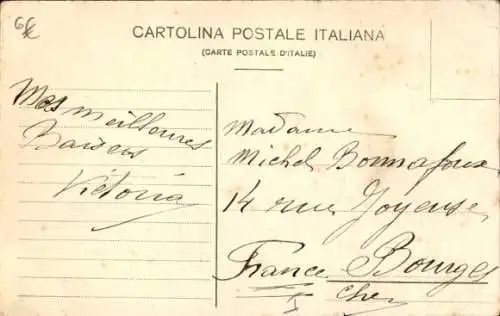 6€
CARTOLINA POSTALE ITALIANA
(CARTE POSTALE D'ITALIE)
Mes meilleures
Baisers
Victoria
Madame
Michel Bonnafoux
14 rue Joyeuse
France Bourges
Cher